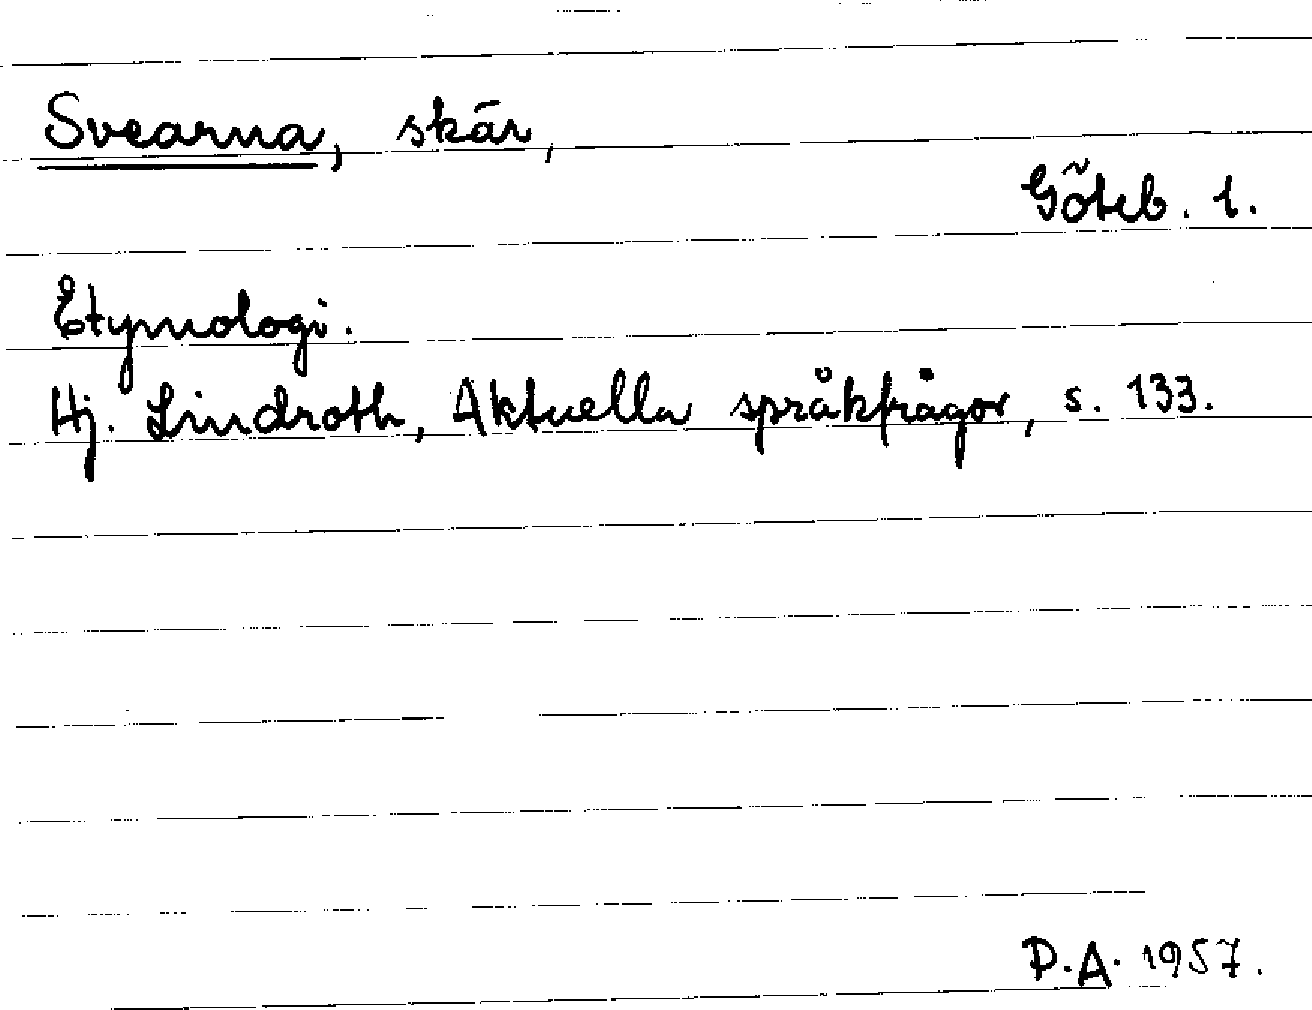 Svearna, skär,
Göteb. 1.
Etymologi.
Hj. Lindroth, Aktuella språkfrågor, s. 133.
P.A. 1957.